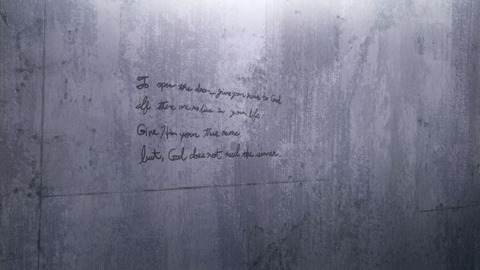 To open the door, give your name to God
If there are no lies in your life
Give your true name
but, God does not need the sinner.